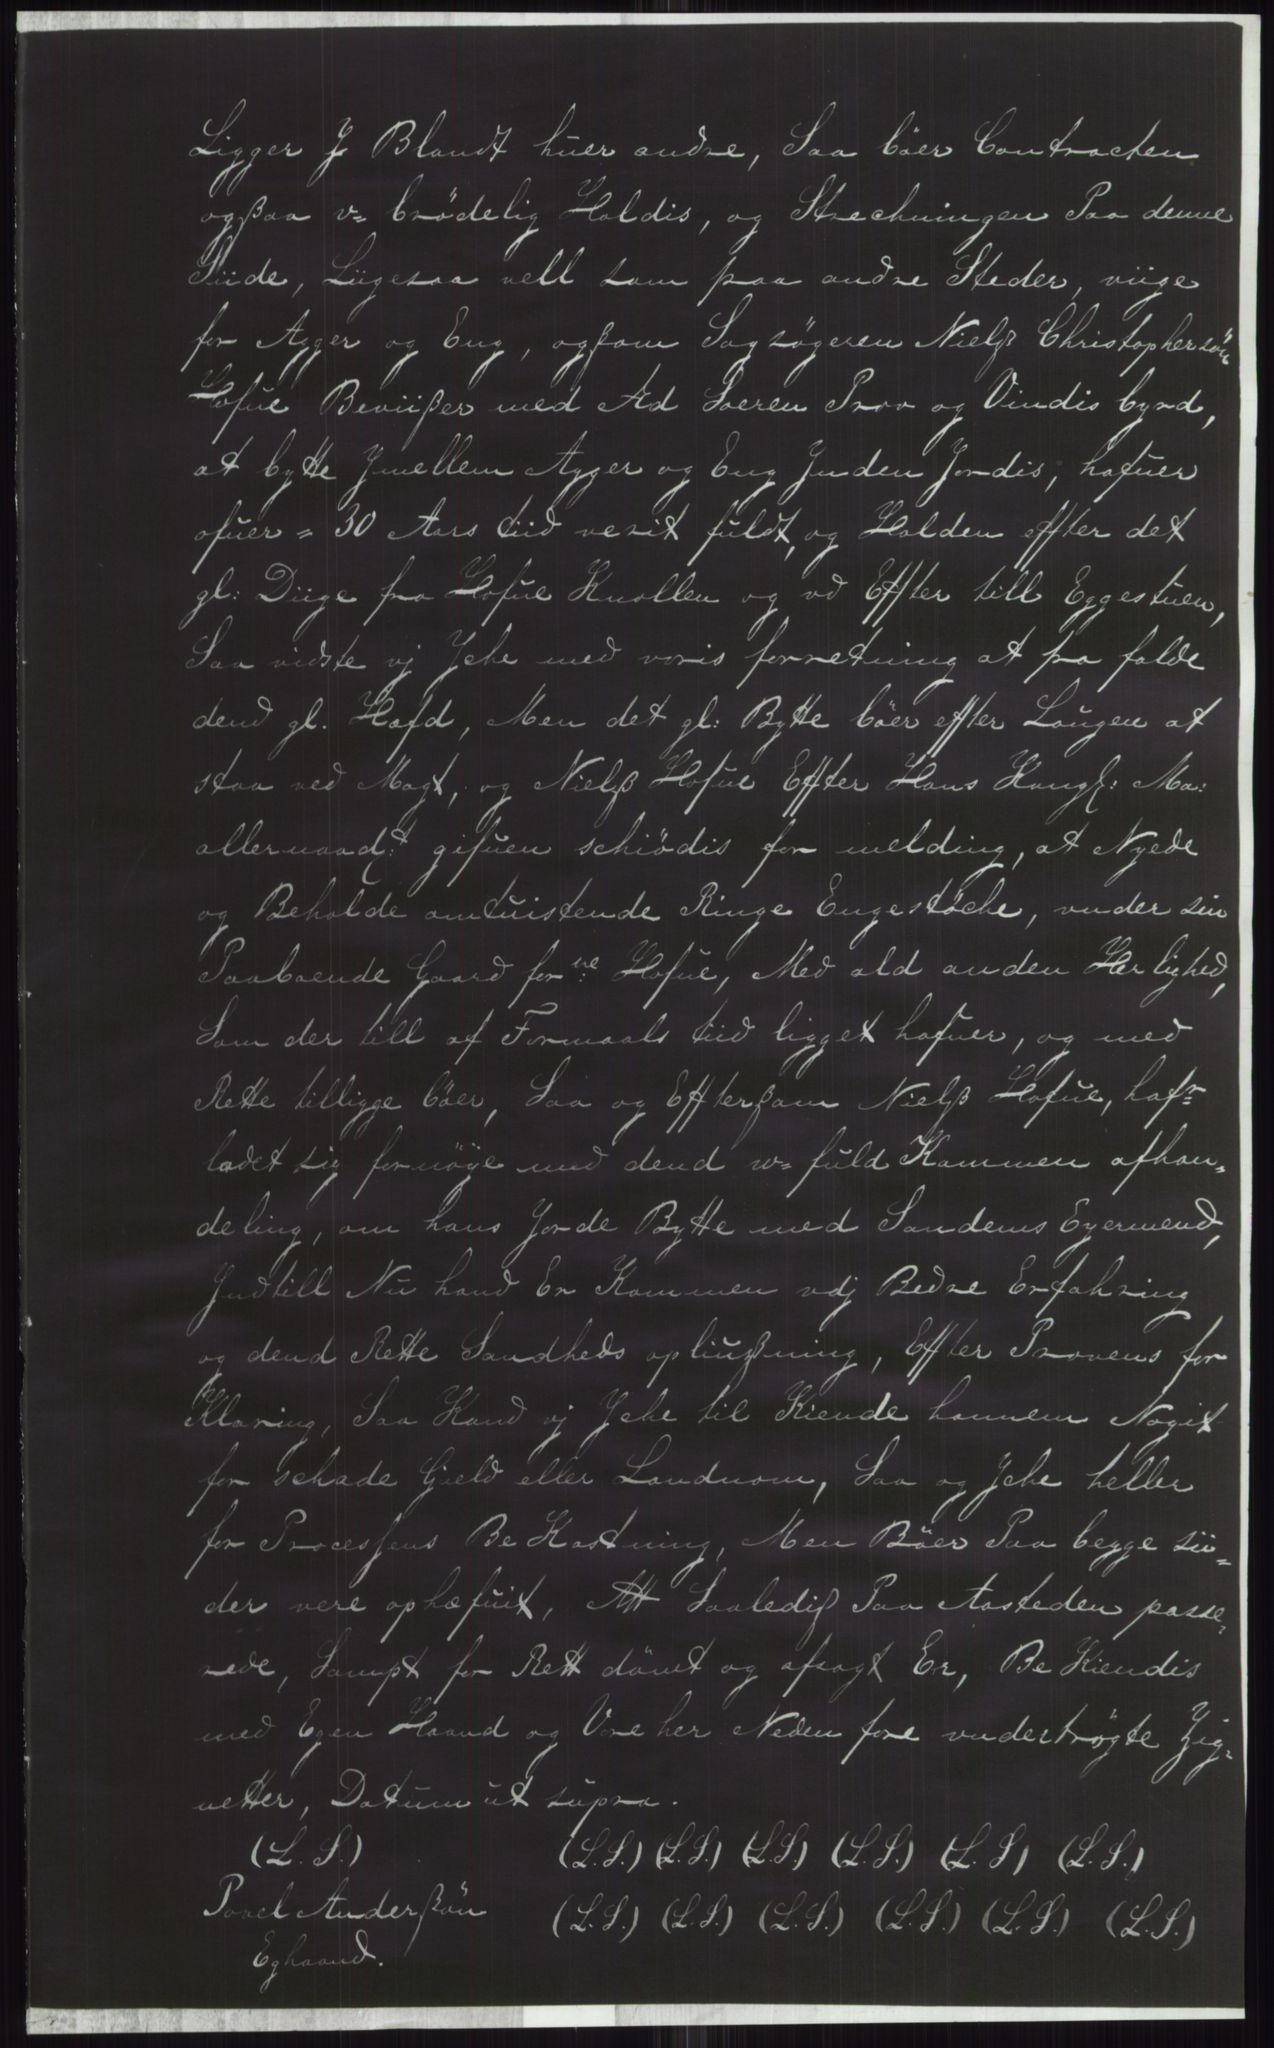 Ligger J Blandt huer andre, Saa böer Contracten
ogßaa v= brödelig Holdis, og Strechningen Paa denne
Siide, Liigesaa vell som paa andre Steder, viige
for Agger og Eng, ogsom Sagsögeren Nielß Christophersön
Hofue Beviißer med Ad Soeren Prov og Vindis byrd,
at bytte Jmellem Agger og Eng Jnden Jordis, hafuer
ofuer = 30 Aars tiid verit fuldt, og Holden effter det
gl: Diige fra Hofue Knollen og vd Effter till Eggestuen,
Saa vidste vj Jche med voris forretning at fra falde
dend gl. Hafd, Men det gl: Bytte böer effter Lougen at
staa ved Magt, og Nielß Hofue Effter Hans Kongl: Ma:
allernaad:t gifuen schiödis for melding, at Nyede
og Beholde omtuistende Ringe Engestöche, vnder sin
Paaboende Gaard for:ne Hofue, Med ald anden Herlighed,
Som der till af Formaals tiid ligget hafuer, og med
Rette tilligge böer, Saa og Effterßom Nielß Hofue, hafr
ladet sig fornöye med dend w= fuld Kommen afhan=
deling, om hans Jorde Bytte med Sandens Eyermend,
Jndtill Nu hand Er Kommen vdj Bedre Erfahring
og dend Rette Sandheds opliußning, Effter Provens for
Klaring, Saa Kand vj Jche til Kiende hannem Nogit
for schade Gield eller Landnom, Saa og Jche heller
for Processens Be Kostning, Men Böer Paa begge sii=
der vere ophefuit, Att Saalediß Paa Aasteden passe,
rede, Sampt for Rett dömt og afsagt Er, Be Kiendis
med Egen Haand og Vore her Neden fore vndertrögte Zig=
netter, Datum ut supra.
(L. S.) (L.S.) (L.S.) (L.S.) (L.S.) (L.S.) (L.S.)
Povel Anderßön (L.S.) (L.S.) (L.S.) (L.S.) (L.S.) (L.S.)
Eghaand.